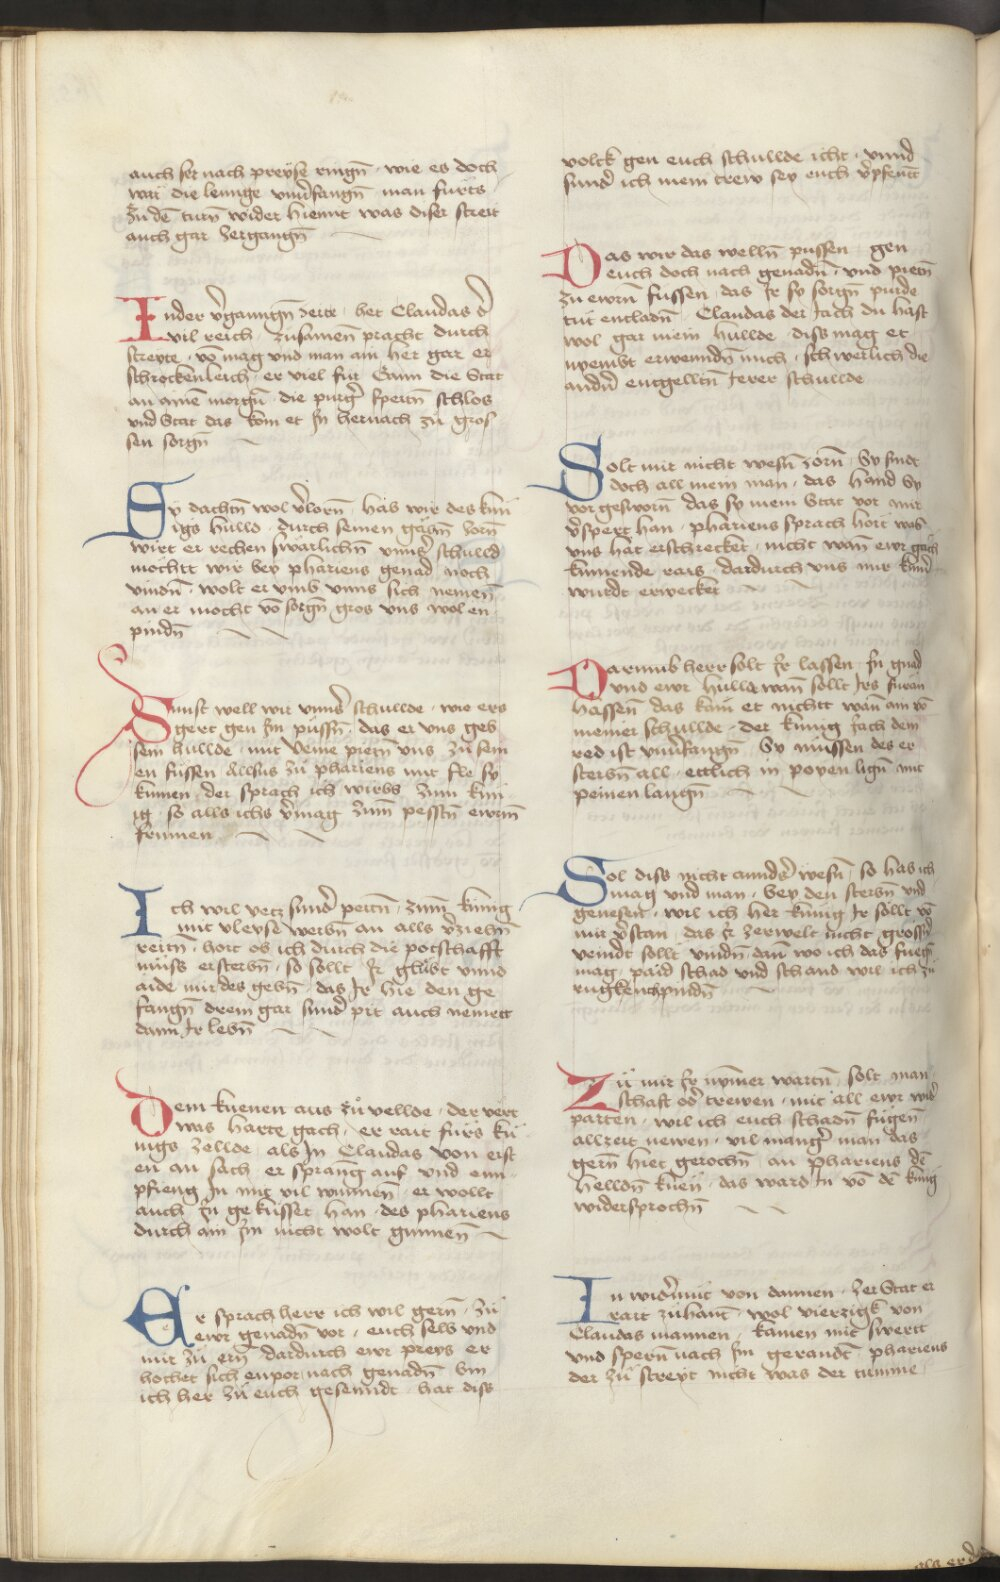 auch ser nach preyse ringn̄ · wie es doch
war die lennge vnuerfangn̄ man furts
zu dē turn wider hinnt was diser streit
auch gar zergangn̄
Inder v̄ganngn̄ zeite · het Claudas d̄
vil reich · zusamen pracht durch
streyte · vō mag vnd man ain her gar er
schrockenleich · er viel fur Gaun die Stat
an aime morgn̄ · die purḡ sperrtn̄ schlos
vnd Stat das kom et In hernach zů gros
sen sorgn̄
Sy dachtn̄ wol v̄lorn̄ · hab wir des kun
igs hulld · durch seinen gahn̄ zorn̄
wirt er rechen swarlichn̄ vnnsr̄ schulld
mochtt wir bey phariens genad noch
vindn̄ · wolt er vmb vnns sich nemen̄
an er mocht vō sorgn̄ gros vns wol en
pindn̄
Sunst well wir vnnsr̄ schullde · wie ers
gert gen Im pussn̄ · das er vns geb
sein hullde · mit veine pietn vns zů sein
en fussen Allsus zů phariens mit fle sy
kumen · der sprach ich wirbs zum kun
ig · so alls ichs v̄mag zum pesstn̄ ewrm̄
frumen
Ich wil yetz sund̄ peitn̄ · zum kunig
mit vleyse werbn̄ an alls v̄ziehn̄
reitn̄ · hort ob ich durch die potschafft
muss ersterbn̄ · so sollt Ir glubt vnnd
aide mir des gebn̄ · das Ir hie den ge
fangn̄ drein gar sund̄ pit auch nemett
dann Ir lebn̄
Dem kuenen aus zů vellde · der vert
was harte gach · er rait furs ku
nigs zellde · als In Claudas von erst
en an sach · er sprang auf vnd enn
pfieng In mit vil wunnen̄ · er wollt
auch In gekusset han · des phariens
durch ain Im nicht wolt gunnen̄
Er sprach herr ich wil gern̄ · zů
ewr genadn̄ vor · euch selb vnd
mir zů ern̄ dardurch ewr preys er
hochet sich enpor nach genadn̄ bin
ich her zů euch gesenndt · hat diss
volck gen euch schullde icht · vnnd
sund̄ ich mein trew sey euch v̄pfennt
Das wir das welln̄ pussen · gen
euch doch nach genadn̄ · vnd pietn̄
zu ewrn̄ fussen · das Ir sy sorgn̄ purde
tut entladn̄ · Claudas der Iach du hast
wol gar mein hullde · diss mag et
nyembt erwenndn̄ mich · schwerlich die
andn̄ entgelltn̄ Ierer schullde
Solt mir nicht wesn̄ zorn̄ · Sy sindt
doch all mein man · das hand Sy
vor gesworn̄ das sy mein Stat vor mir
v̄spert han · phariens sprach hort was
vns hat erschrecket · nicht wan̄ ewr gach
kumende rais · dardurch vns nur kumr̄
wurdt erwecket
Darumb herr solt Ir lassen · In gnad
vnd ewr hulld wan̄ sollt Irs furan
hassen̄ das kam et nichtt wan̄ am vō
meiner schullde · der kunig sach dein
red ist vnuerfangn̄ · Sy mussen des er
sterbn̄ all · ettlich in poyen lign̄ mit
peinen langn̄
Sol diss nicht annds̄ wesn̄ · so hab ich
mag vnd man · bey den sterbn̄ vnd
genesen · wil ich her kunig Ir sollt vō
mir v̄stan · das Ir zerwelt nicht grossr̄n
veindt sollt vindn̄ · dan̄ wo ich das fuegn̄
mag · paid schad vnd schand wil ich zů
rugken pindn̄
Zů mir Ir nymer wartn̄ · solt man
schaft od̄ trewen · mit all ewr wid̄
parten · wil ich euch schadn̄ fugen̄
allzeit newen · vil mangr̄ man das
gern̄ hiet gerochn̄ · an phariens dē
helldn̄ kuen̄ · das ward In vō dē kunig
widersprochn̄
In widr̄mut von dannen · zer Stat er
rait zůhant · wol vierzigk von
Claudas mannen · kamen mit swertt
vnd spern̄ nach Im gerandt · phariens
der zů streyt nicht was der tumme